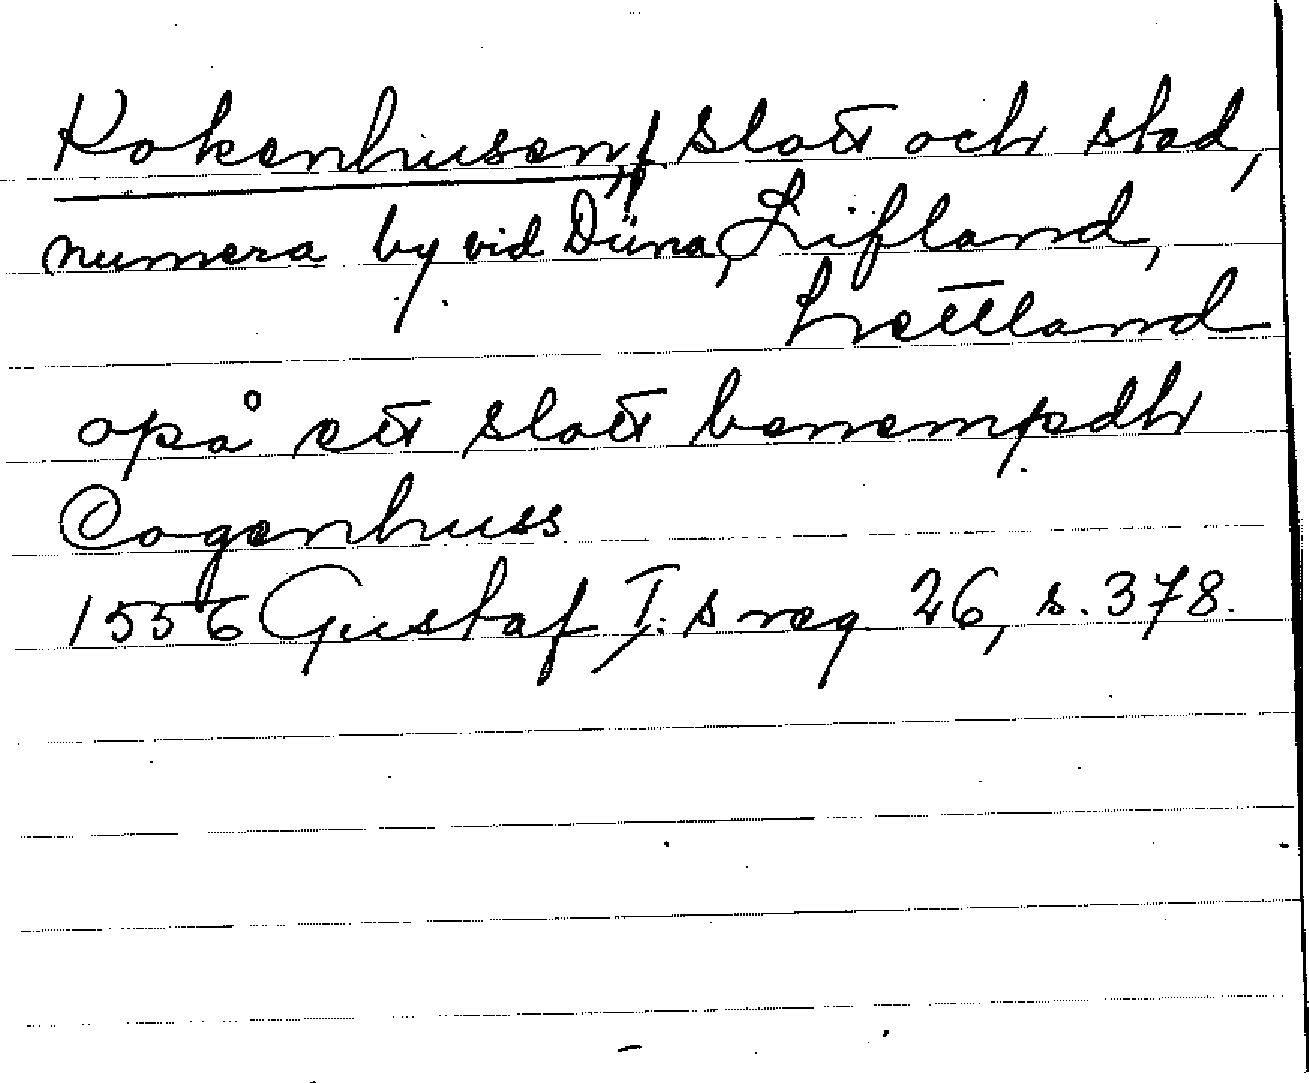 Kokenhusen, f slott och stad,
numera by vid Düna, Lifland,
Lettland
opå ett slott benempdh
Cogenhuss
1556 Gustaf I:s reg 26, s. 378.